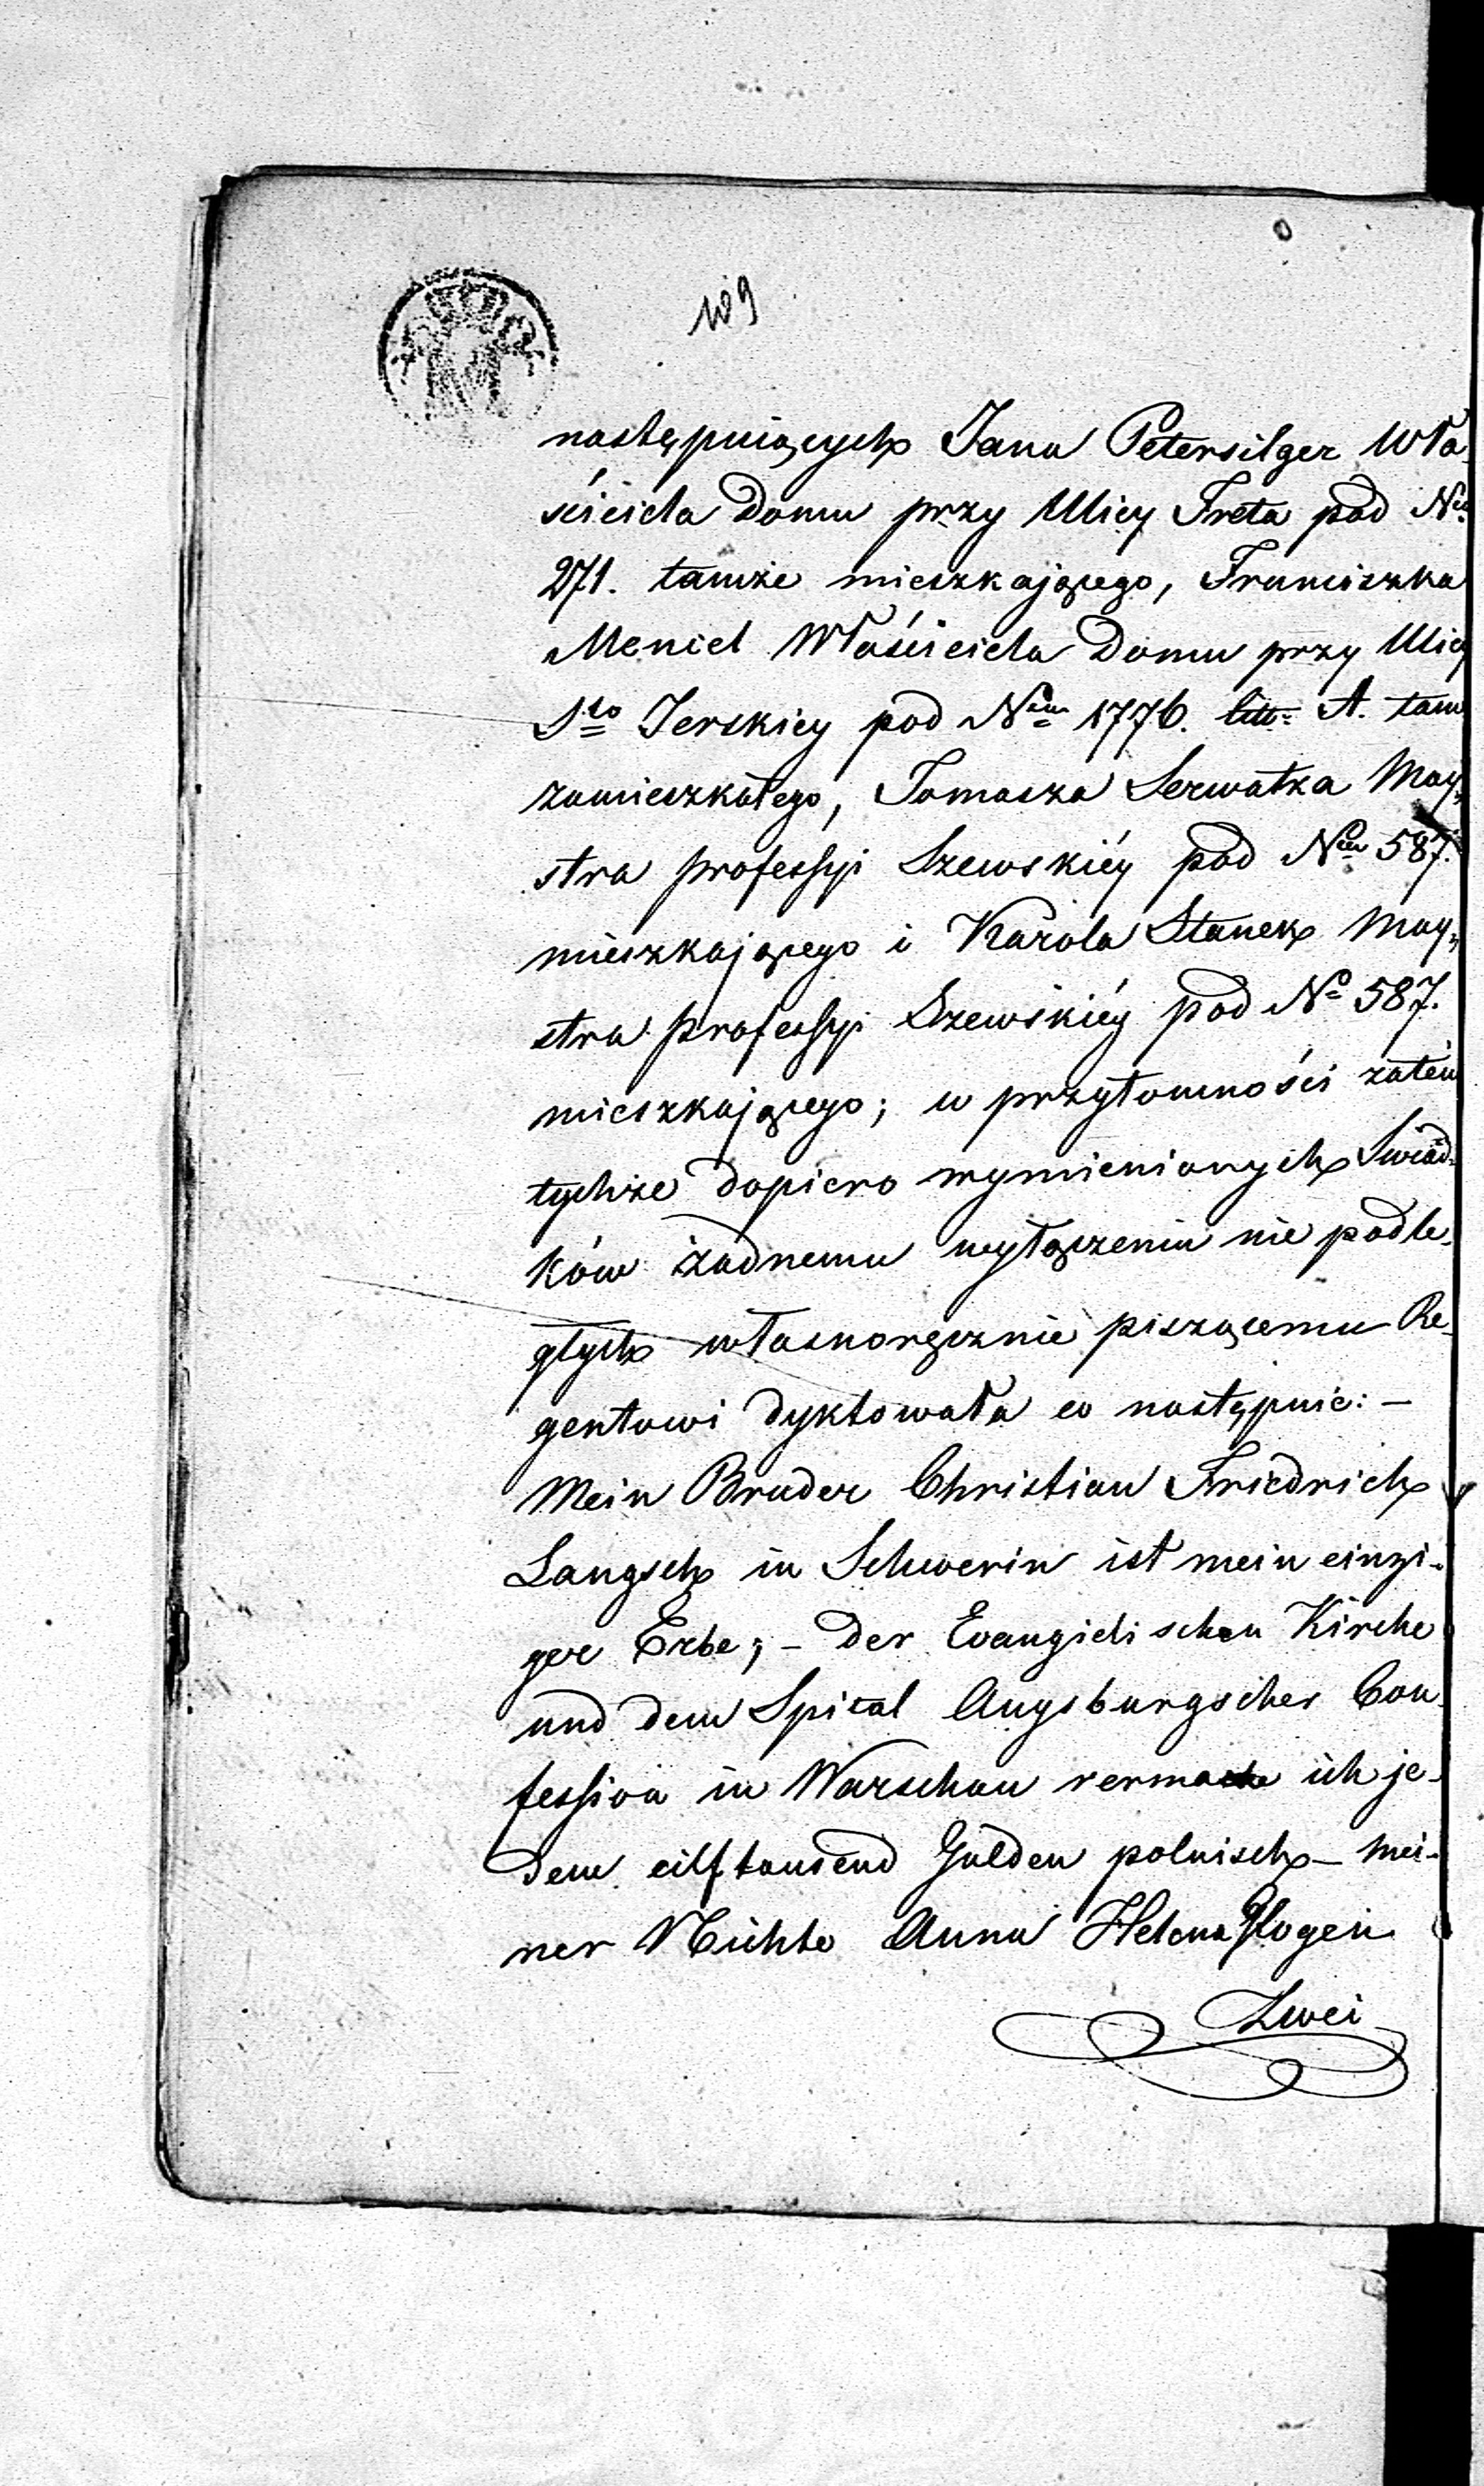 109
następuiących Jana Petersilger Wła-
ściciela Domu przy Ulicy Freta pod Nem
271. tamże mieszkającego, Franciszka
Meniel Właściciela Domu przy Ulicy
Sto Jerskiey pod Nem 1776. litt: A. tam
zamieszkałego, Tomasza Serwatka May-
stra professyi Szewskiéy pod Nem 587.
mieszkającego i Karola Stanek May-
stra professyi Szewskiéy pod No 587.
mieszkającego; w przytomności zatém
tychże dopiero wymienionych Swiad-
ków żadnemu wyłączeniu nie podle-
głych własnoręcznie piszącemu Re-
gentowi dyktowała co następuie: –
Mein Bruder Christian Friedrich
Langsch in Schwerin ist mein einzi-
ger Erbe; – Der Evangielischen Kirche
und dem Spital Augsburgscher Con-
fession in Warschau vermache ich je-
dem eilftausend Gulden polnisch – mei-
ner Nichte Anna Helena Plogen
Zwei